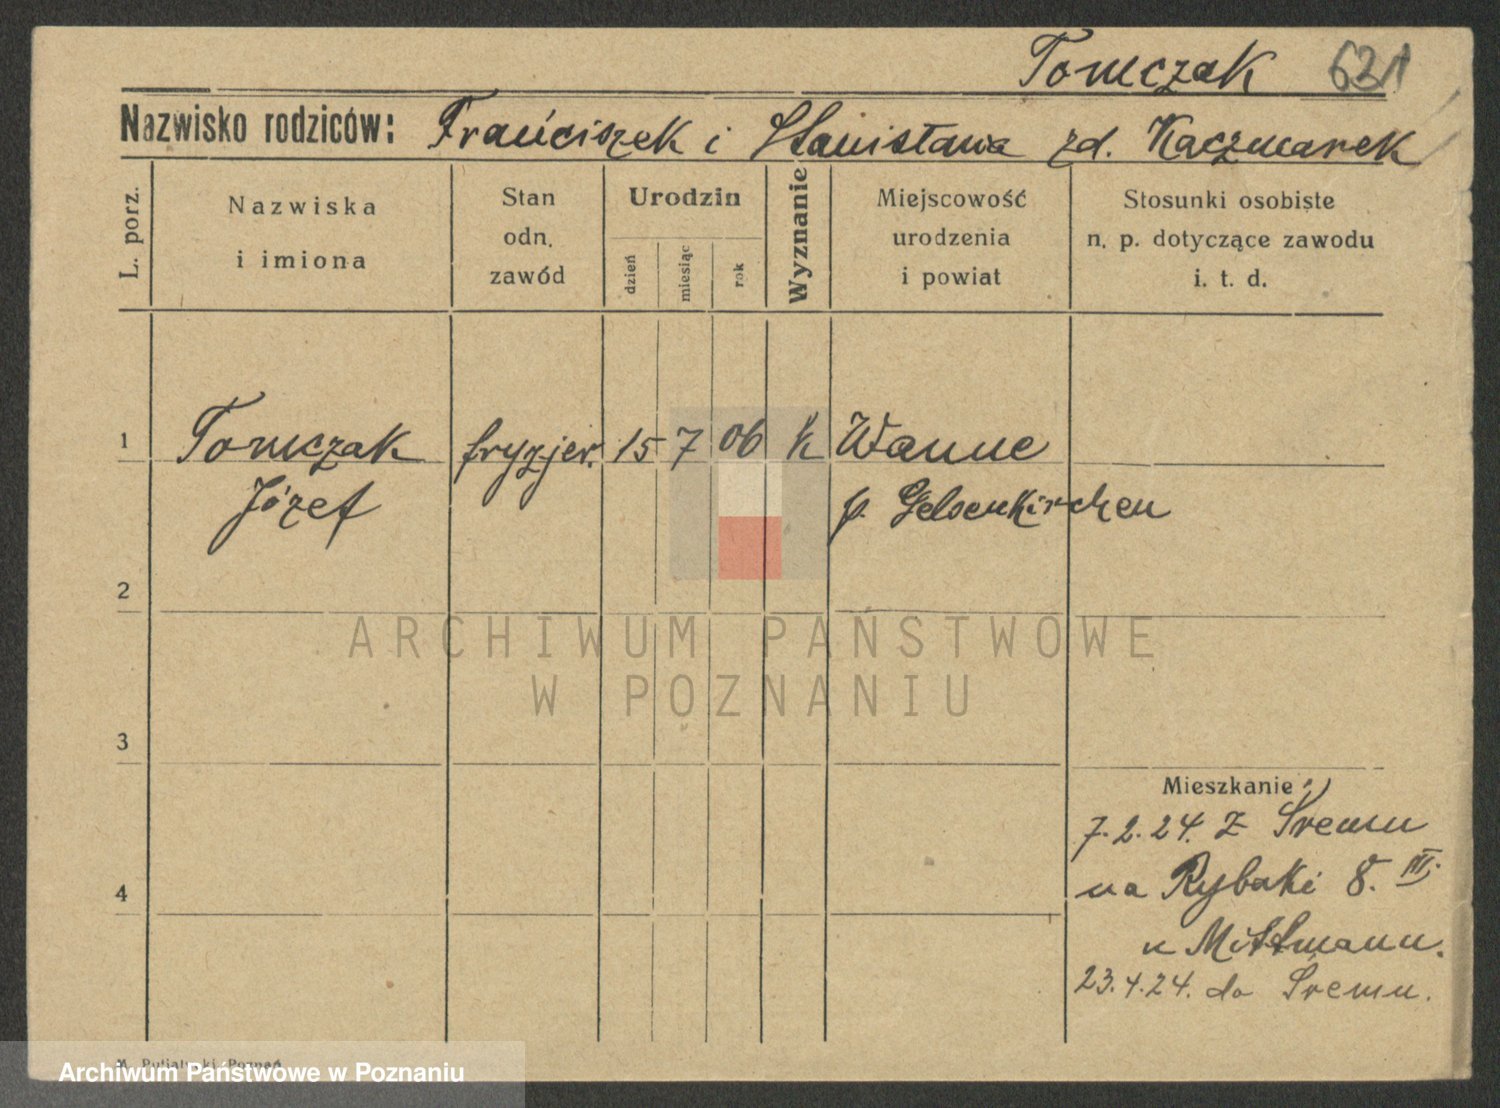 Tomczak 621
Nazwisko rodziców: Franciszek i Stanisława zd. Kaczmarek
L. porz.
Nazwiska
i imiona
Stan
odn.
zawód
Urodzin
dzień
miesiąc
rok
Wyznanie
Miejscowość
urodzenia
i powiat
Stosunki osobiste
n. p. dotyczące zawodu
i. t. d.
1 Tomczak fryzjer. 15 7 06 k Wanne
Józef p. Gelsenkirchen
2
ARCHIWUM PAŃSTWOWE
W POZNANIU
3
Mieszkanie:
7.2.24. z Śremu
4
na Rybaki 8. III.
u Mittmann.
23.4.24. do Śremu.
Poznań
Archiwum Państwowe w Poznaniu